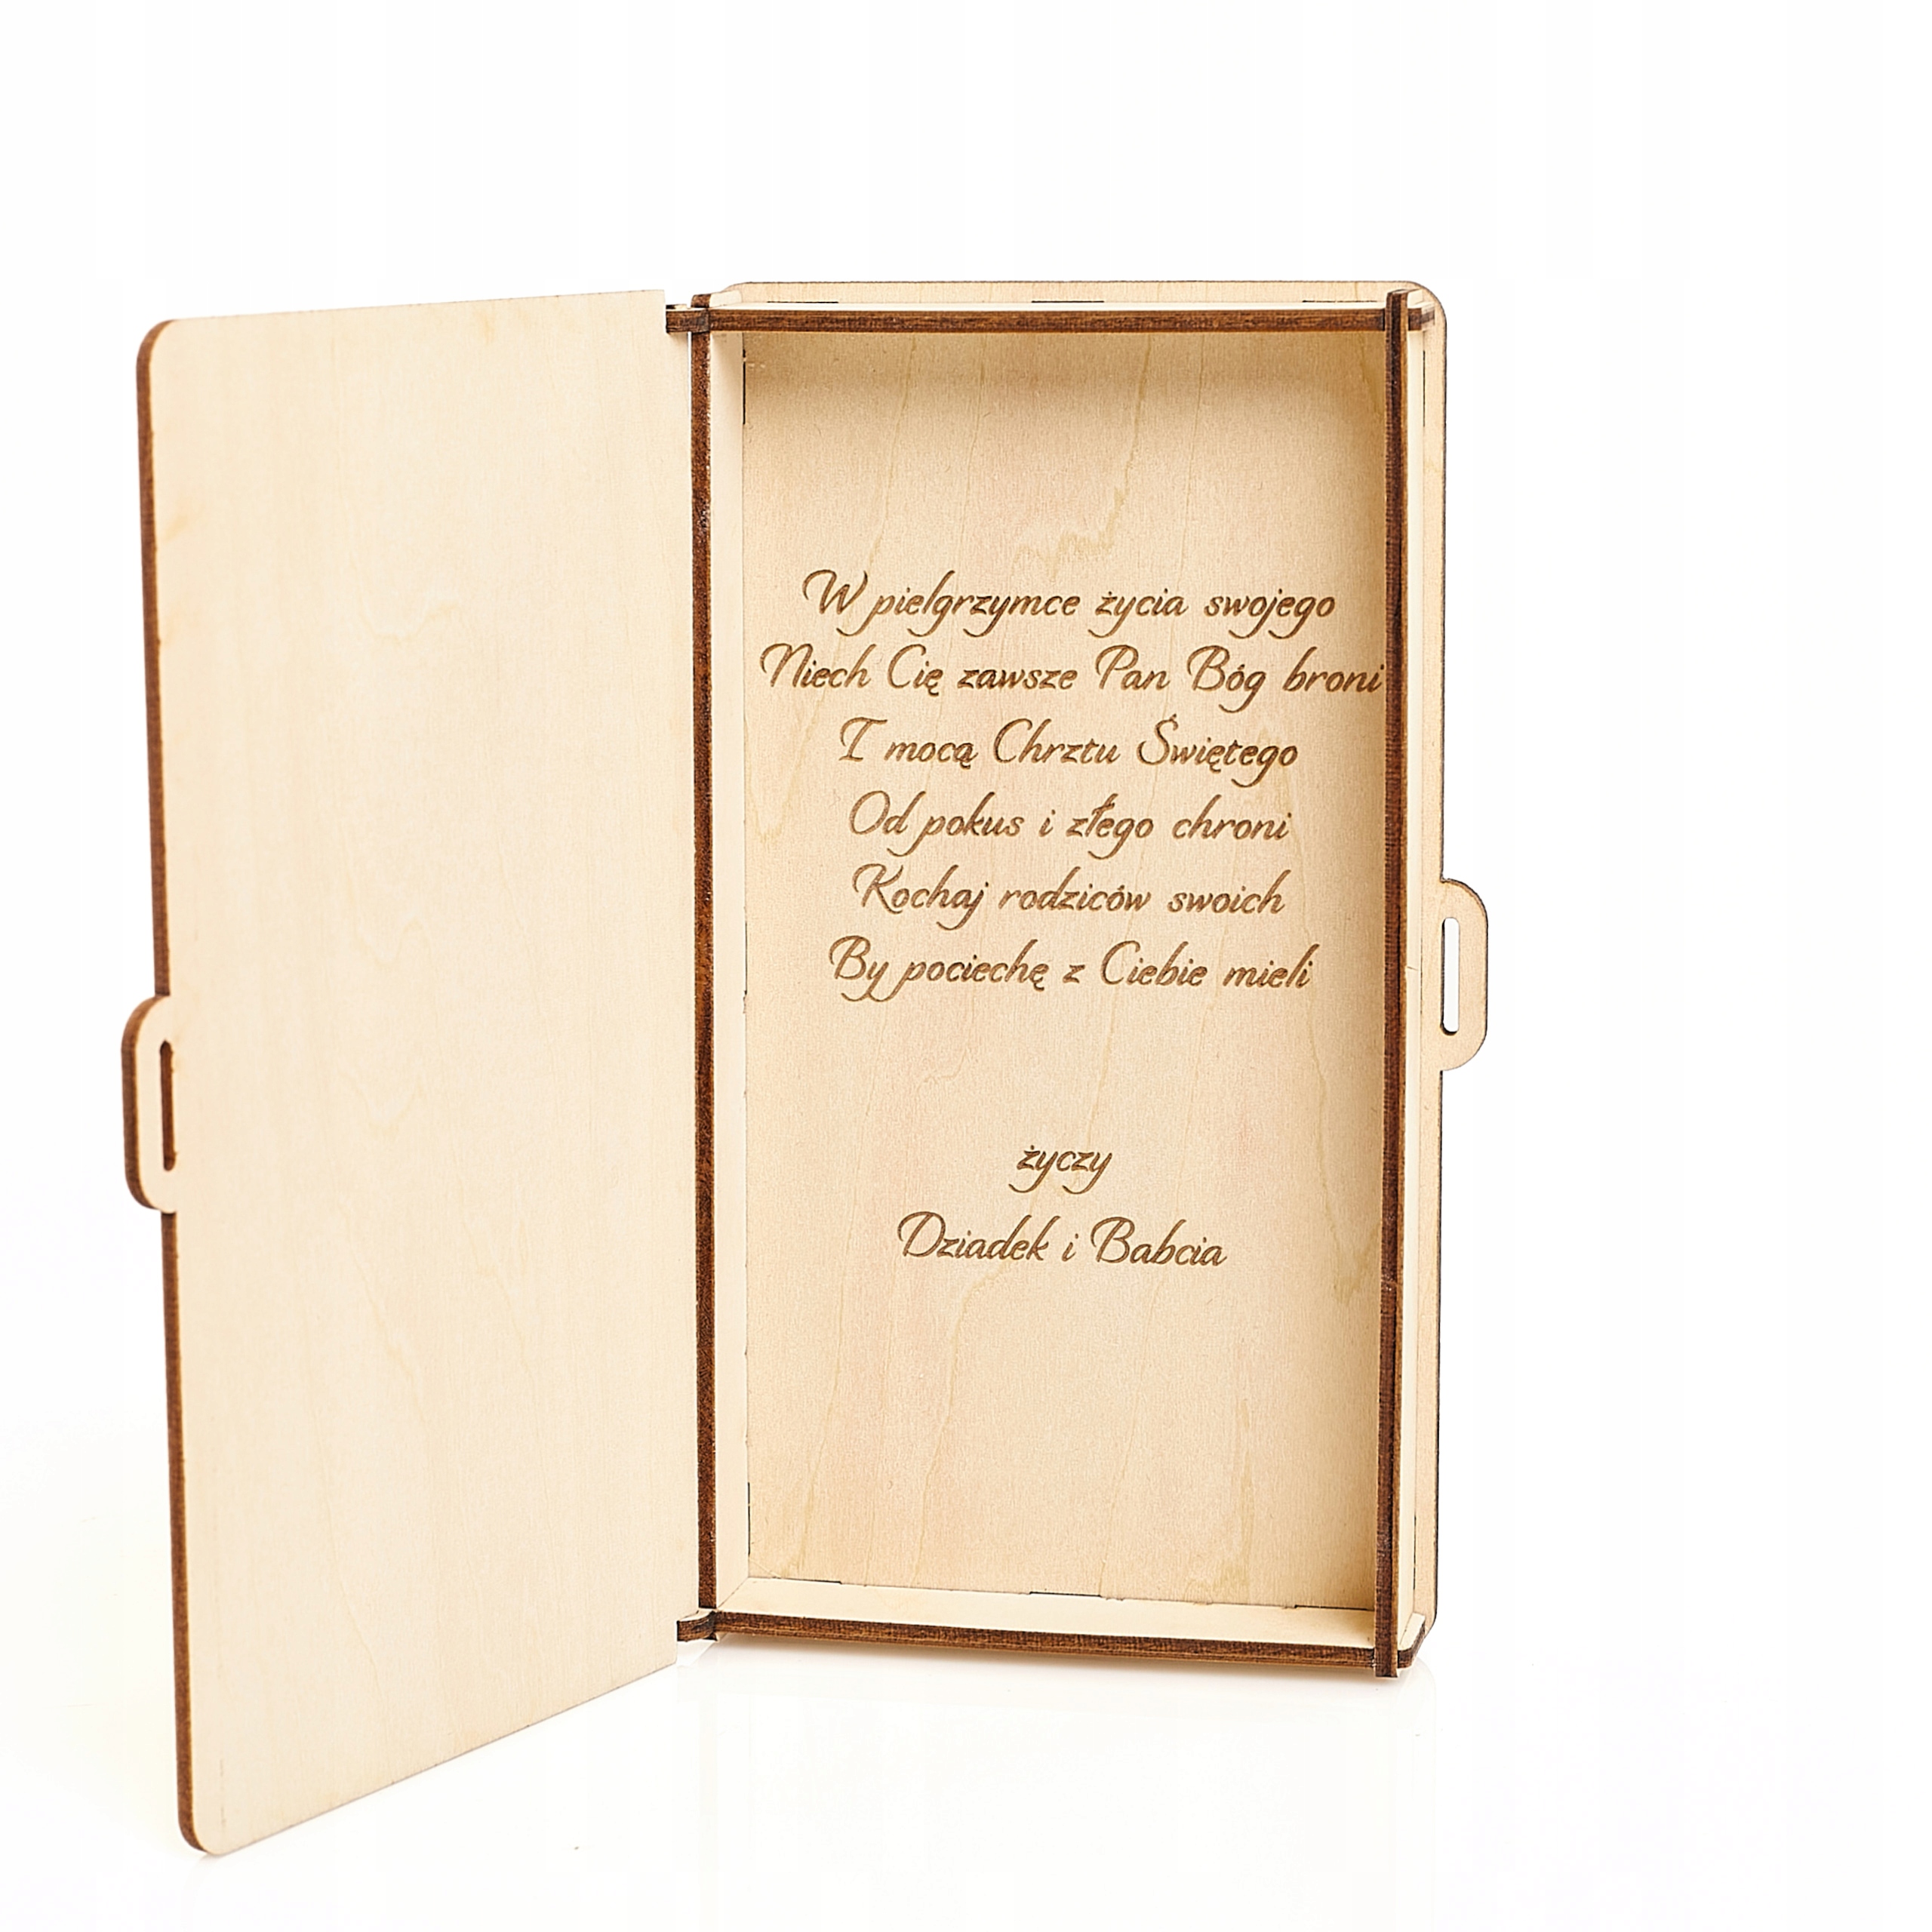 W pielgrzymce życia swojego
Niech Cię zawsze Pan Bóg broni
I mocą Chrztu Świętego
Od pokus i złego chroni
Kochaj rodziców swoich
By pociechę z Ciebie mieli
życzy
Dziadek i Babcia